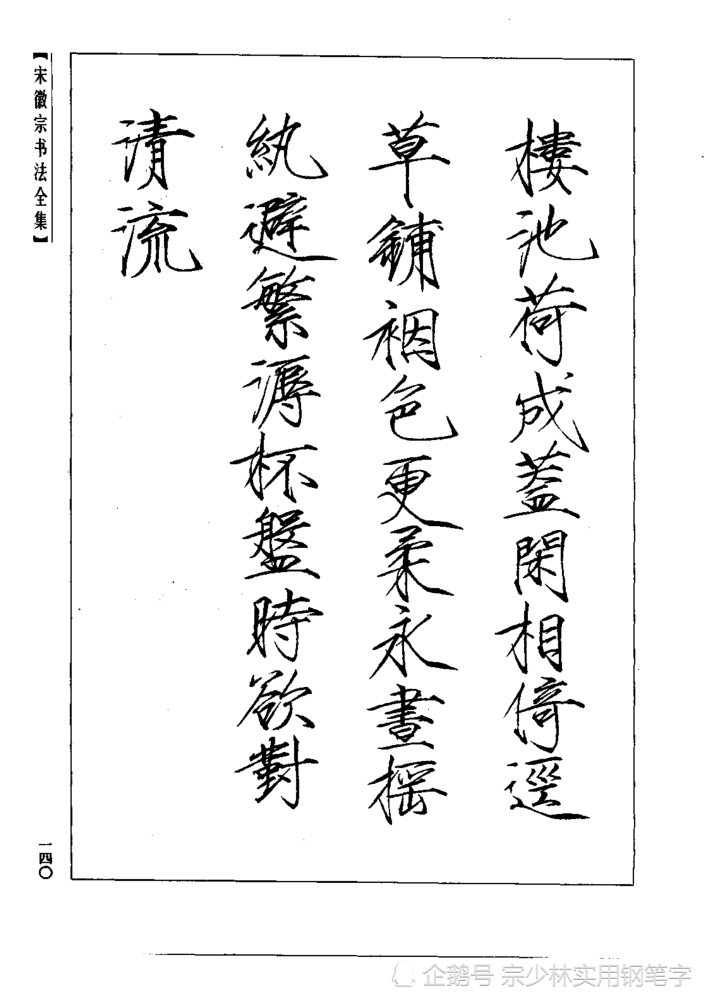 【宋徽宗书法全集】
樓池荷成蓋閑相倚逕
草鋪裀色更柔永晝搖
紈避繁溽杯盤時欲對
清流
一四〇
企鹅号 宗少林实用钢笔字